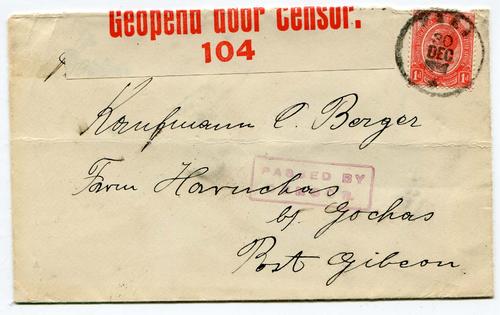 Geopend door Censor.
104
30
DEC
1d 1d
Kaufmann C. Berger
PASSED BY
Farm Haruchas
by Gochas
Post Gibeon